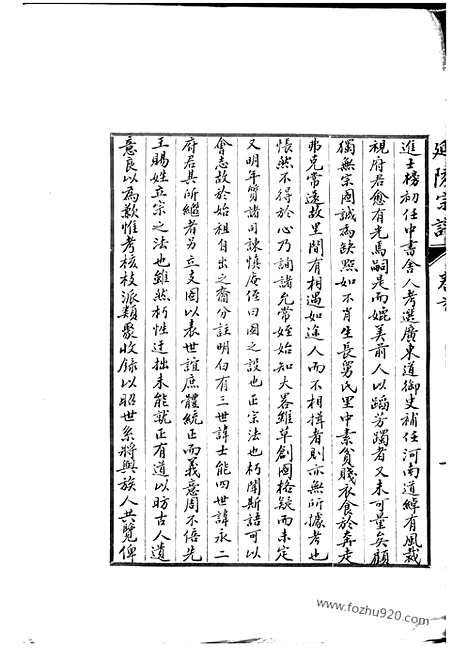 進士榜初任中書舍人考選廣東道御史補任河南道綽有風裁
視府君愈有光焉嗣是而媲美前人以蹈芳躅者又未可量矣顧
獨無宗圖誠為缺照如不肖生長舅氏里中素貧賤衣食於奔走
弗克常還故里間有相遇如途人而不相揖者則亦無所據考也
悵然不得於心乃詢諸允常姪始知大畧雖草創圖格疑而未定
又明年質諸司諫慎庵侄曰圖之設也正宗法也朽聞斯語可以
會志故於始祖自出之裔分註明白有三世諱士能四世諱永二
府君其所繼者另立支圖以表世誼庶體統正而義意周不倍先
王賜姓立宗之法也雖然朽性迂拙未能就正有道以昉古人遺
意良以為歉惟考核枝派類聚收錄以昭世系將與族人共覽俾
延陵宗譜
卷首
www.fozhu920.com